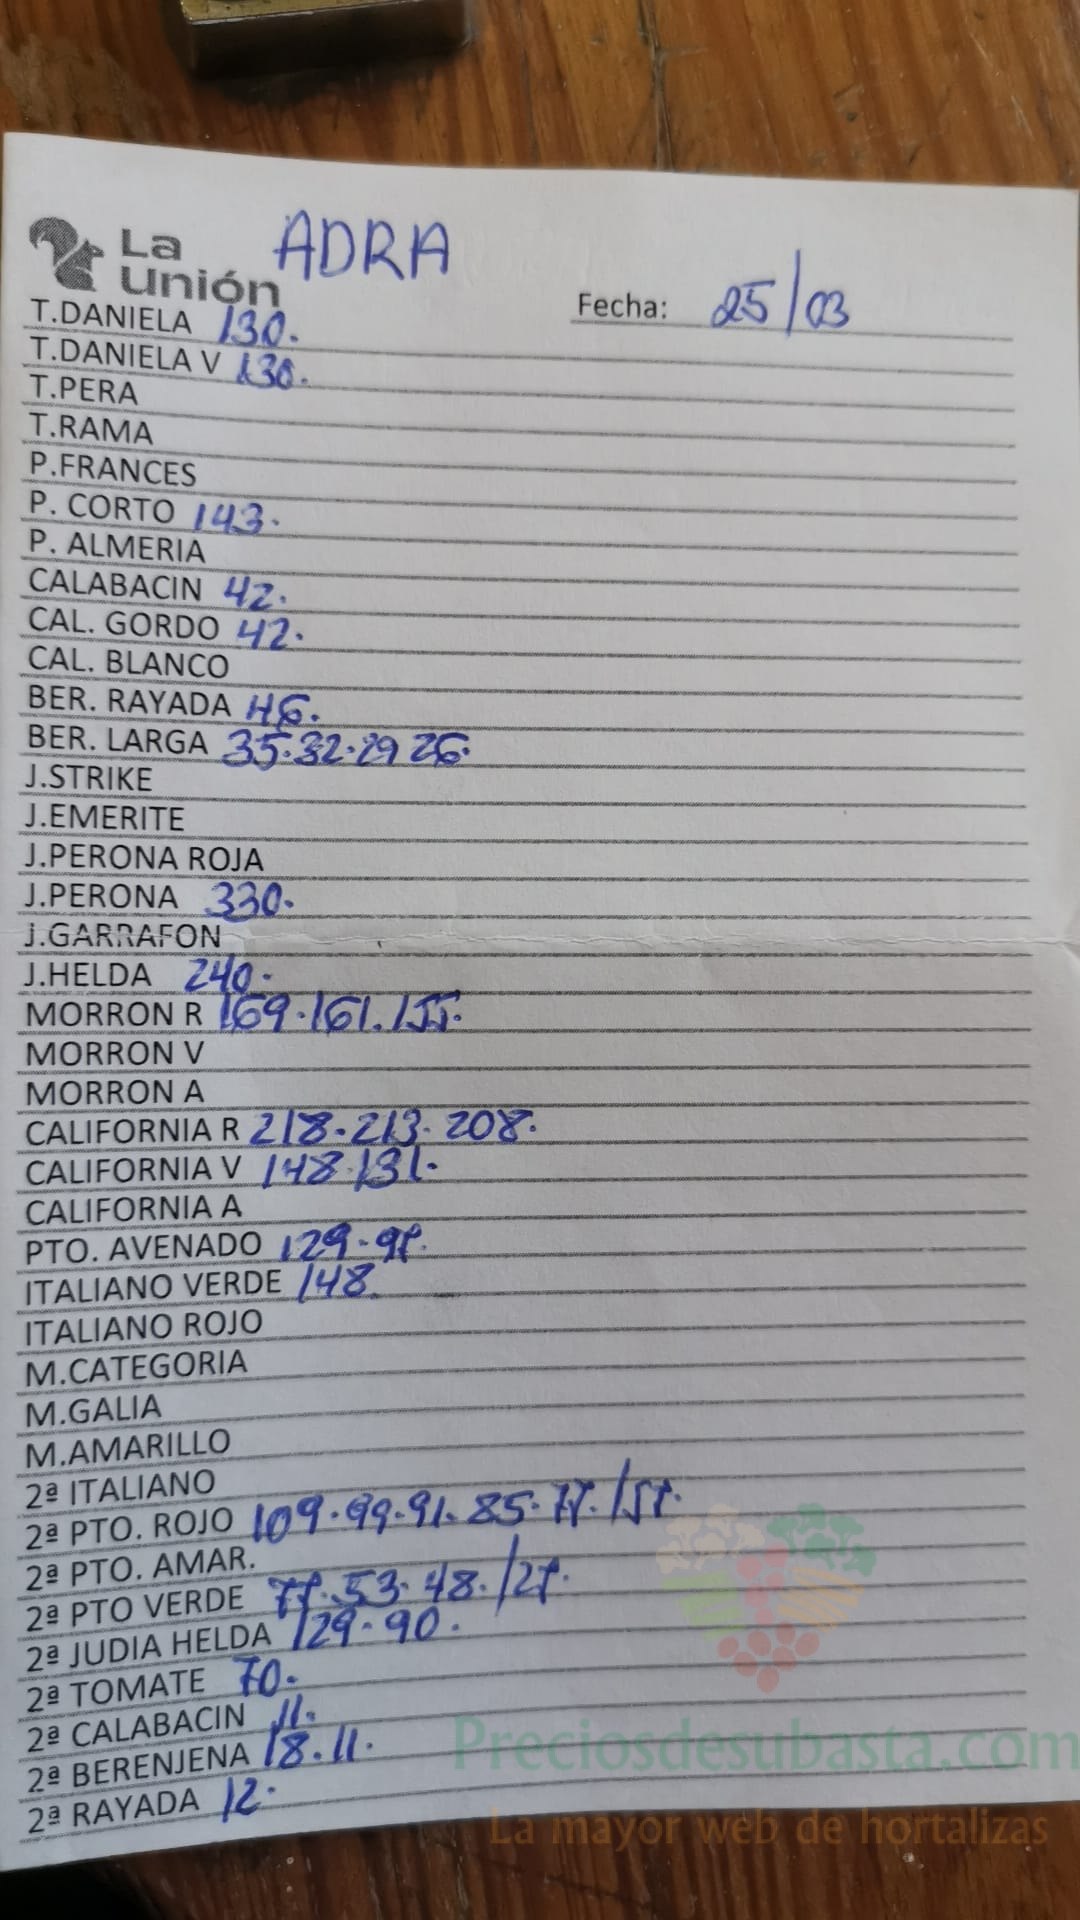 La Unión ADRA
Fecha: 25/03
T.DANIELA 130.
T.DANIELA V 130.
T.PERA
T.RAMA
P.FRANCES
P. CORTO 143.
P. ALMERIA
CALABACIN 42.
CAL. GORDO 42.
CAL. BLANCO
BER. RAYADA 46.
BER. LARGA 35.32.29 26.
J.STRIKE
J.EMERITE
J.PERONA ROJA
J.PERONA 330.
J.GARRAFON
J.HELDA 240.
MORRON R 169.161.155.
MORRON V
MORRON A
CALIFORNIA R 218.213.208.
CALIFORNIA V 148.131.
CALIFORNIA A
PTO. AVENADO 129.97.
ITALIANO VERDE 148.
ITALIANO ROJO
M.CATEGORIA
M.GALIA
M.AMARILLO
2ª ITALIANO
2ª PTO. ROJO 109.99.91.85.77./57.
2ª PTO. AMAR.
2ª PTO VERDE 77.53.48./27.
2ª JUDIA HELDA 129.90.
2ª TOMATE 70.
2ª CALABACIN 11.
2ª BERENJENA 18.11.
2ª RAYADA 12.
Preciosdesubasta.com
La mayor web de hortalizas